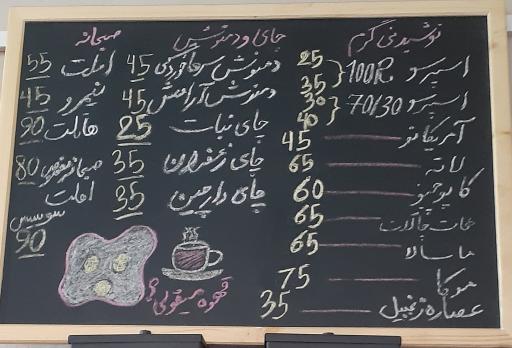 نوشیدنی گرم
اسپرسو 100R { 25
35
اسپرسو 70/30 { 30
40
آمریکانو 45
لاته 65
کاپوچینو 60
هات چاکلت 65
ماسالا 65
موکا 75
عصاره زنجبیل 35
چای و دمنوش
دمنوش سرماخوردگی 45
دمنوش آرامش 45
چای نبات 25
چای زعفران 35
چای دارچین 35
قهوه میقولی؟
صبحانه
املت 55
نیمرو 45
هاملت 90
صبحانه مخصوص 80
املت
سوسیس
90